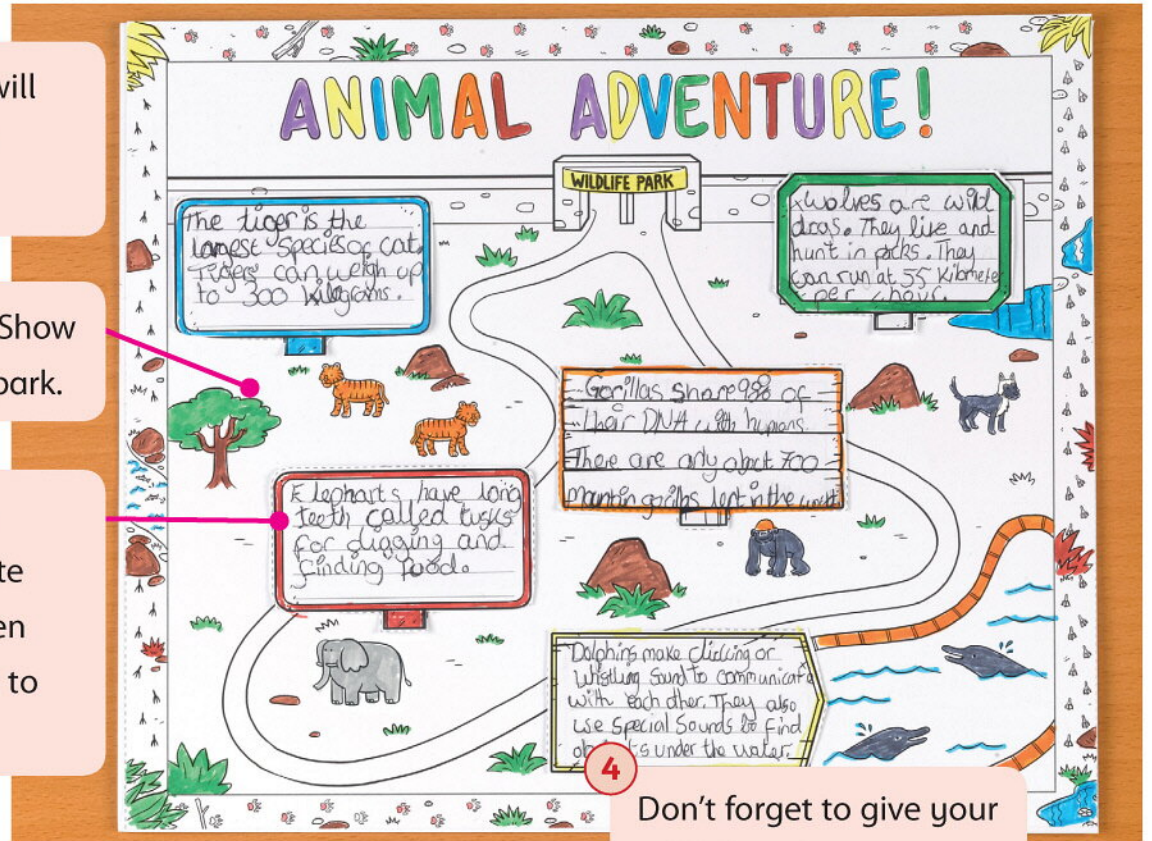 will
Show
park.
te
en
to
ANIMAL ADVENTURE!
WILDLIFE PARK
The tiger is the
largest species of cat.
Tigers can weigh up
to 300 kilograms.
Wolves are wild
dogs. They live and
hunt in packs. They
can run at 55 kilometer
per hour.
Gorillas share 98% of
their DNA with humans.
There are only about 700
mountain gorillas left in the
Elephants have long
teeth called tusks
for digging and
finding food.
Dolphins make clicking or
whistling sound to communicate
with each other. They also
use special sounds to find
under the water.
4
Don't forget to give your